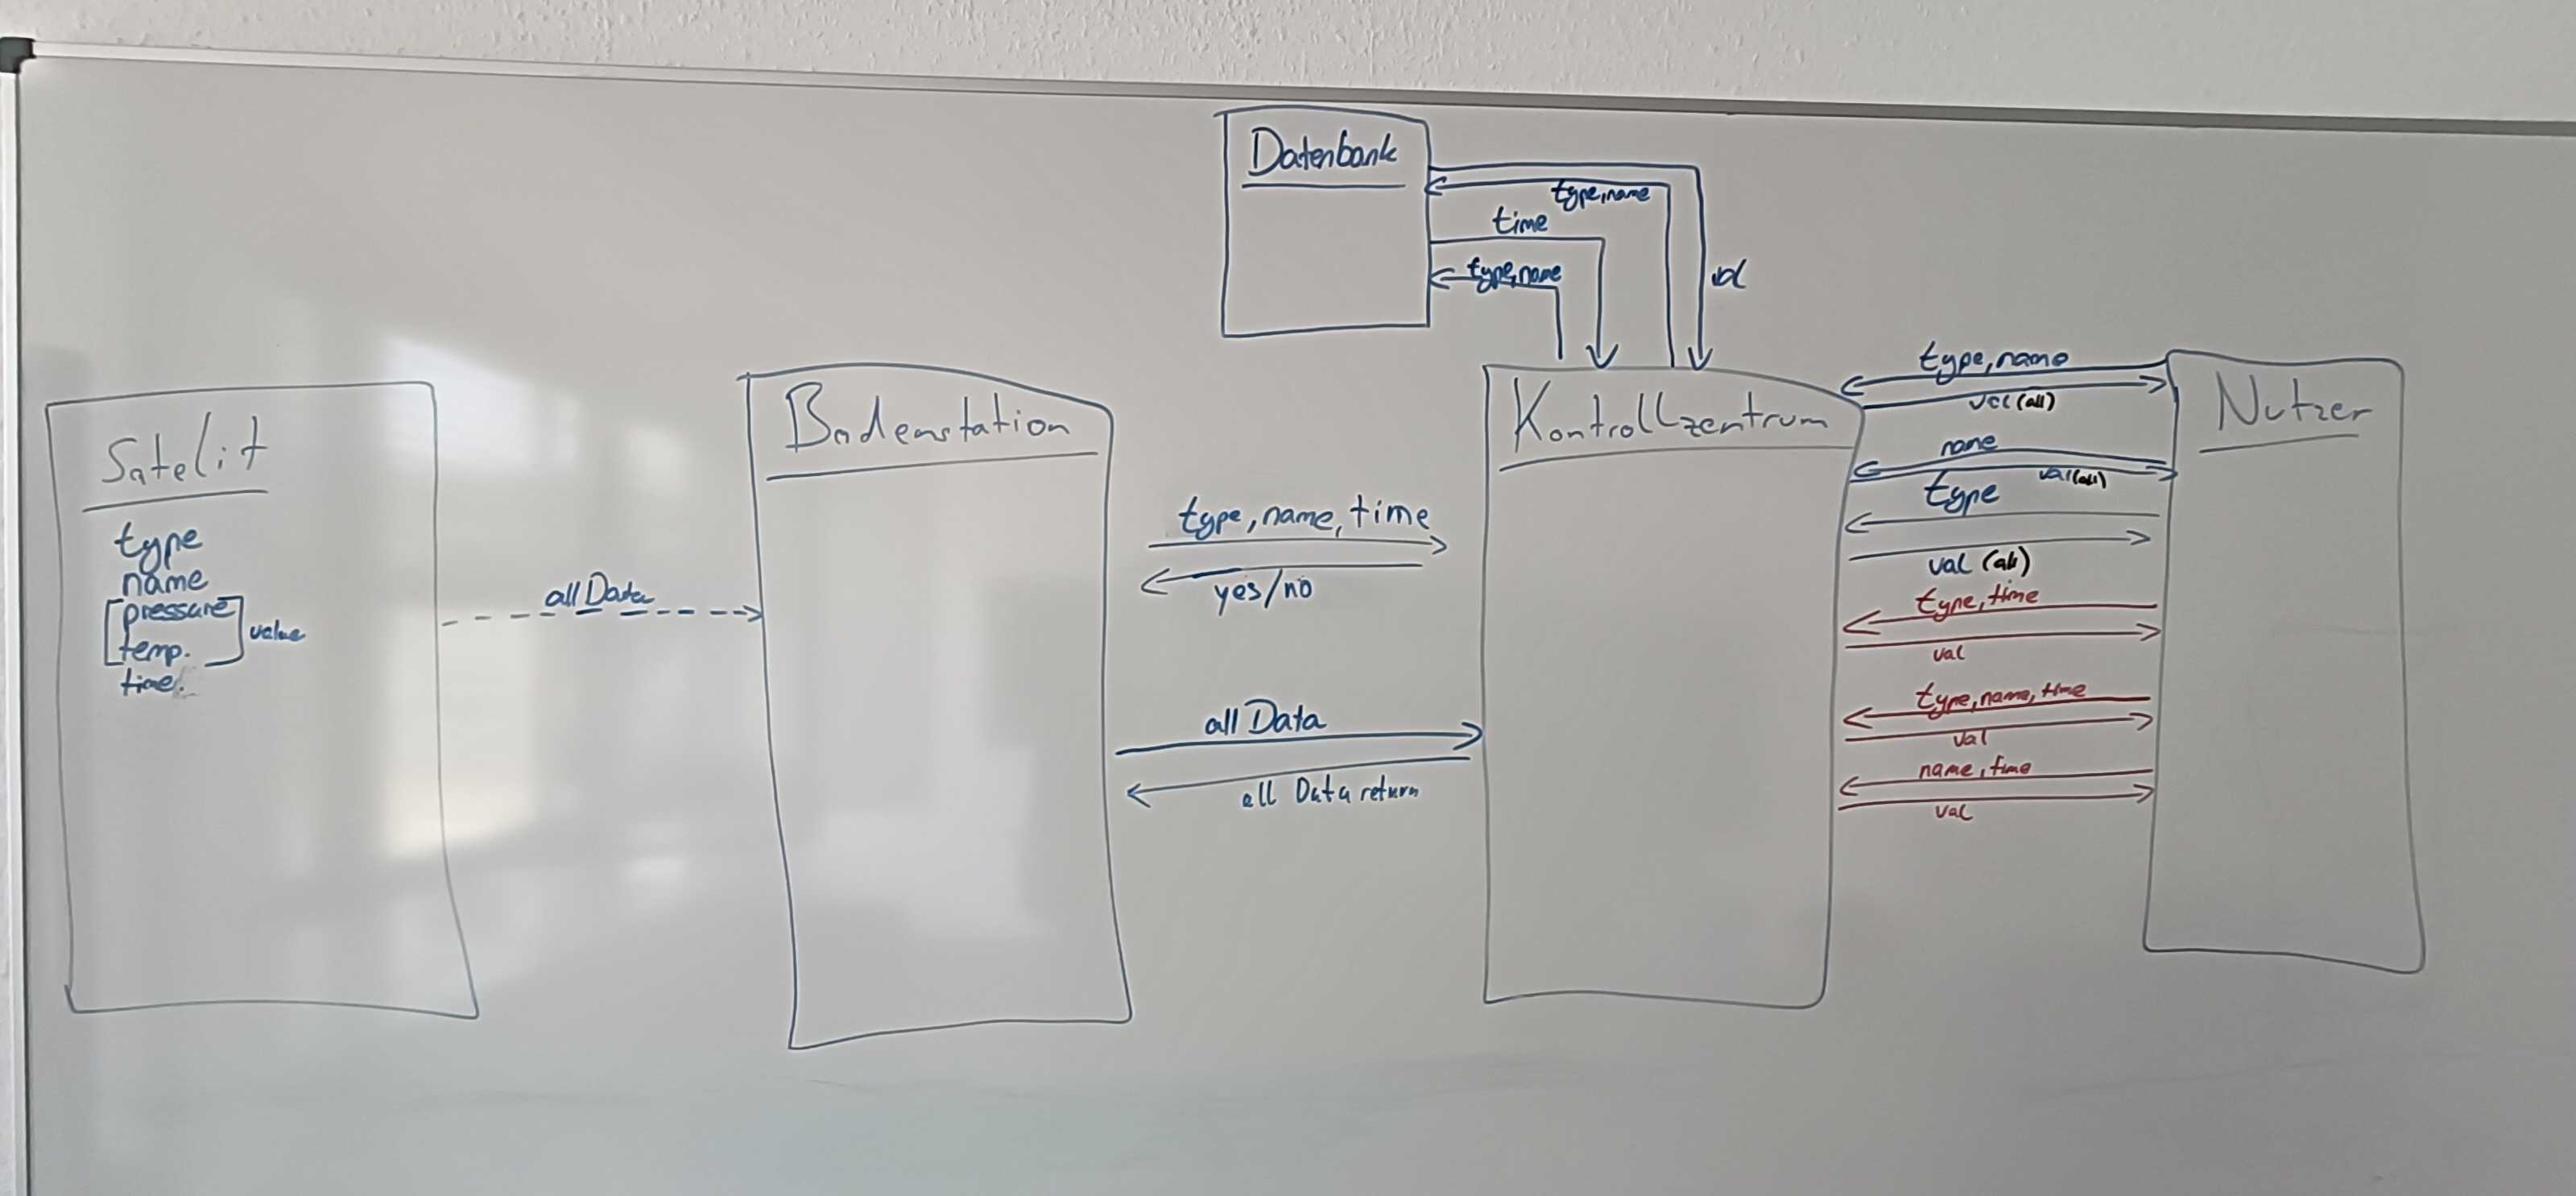 Datenbank
type,name
time
type,name
val
Satelit
type
name
pressure
temp.
value
time.
all Data
Bodenstation
type, name, time
yes/no
all Data
all Data return
Kontrollzentrum
type, name
val (all)
name
val (all)
type
val (all)
type, time
val
type, name, time
val
name, time
val
Nutzer